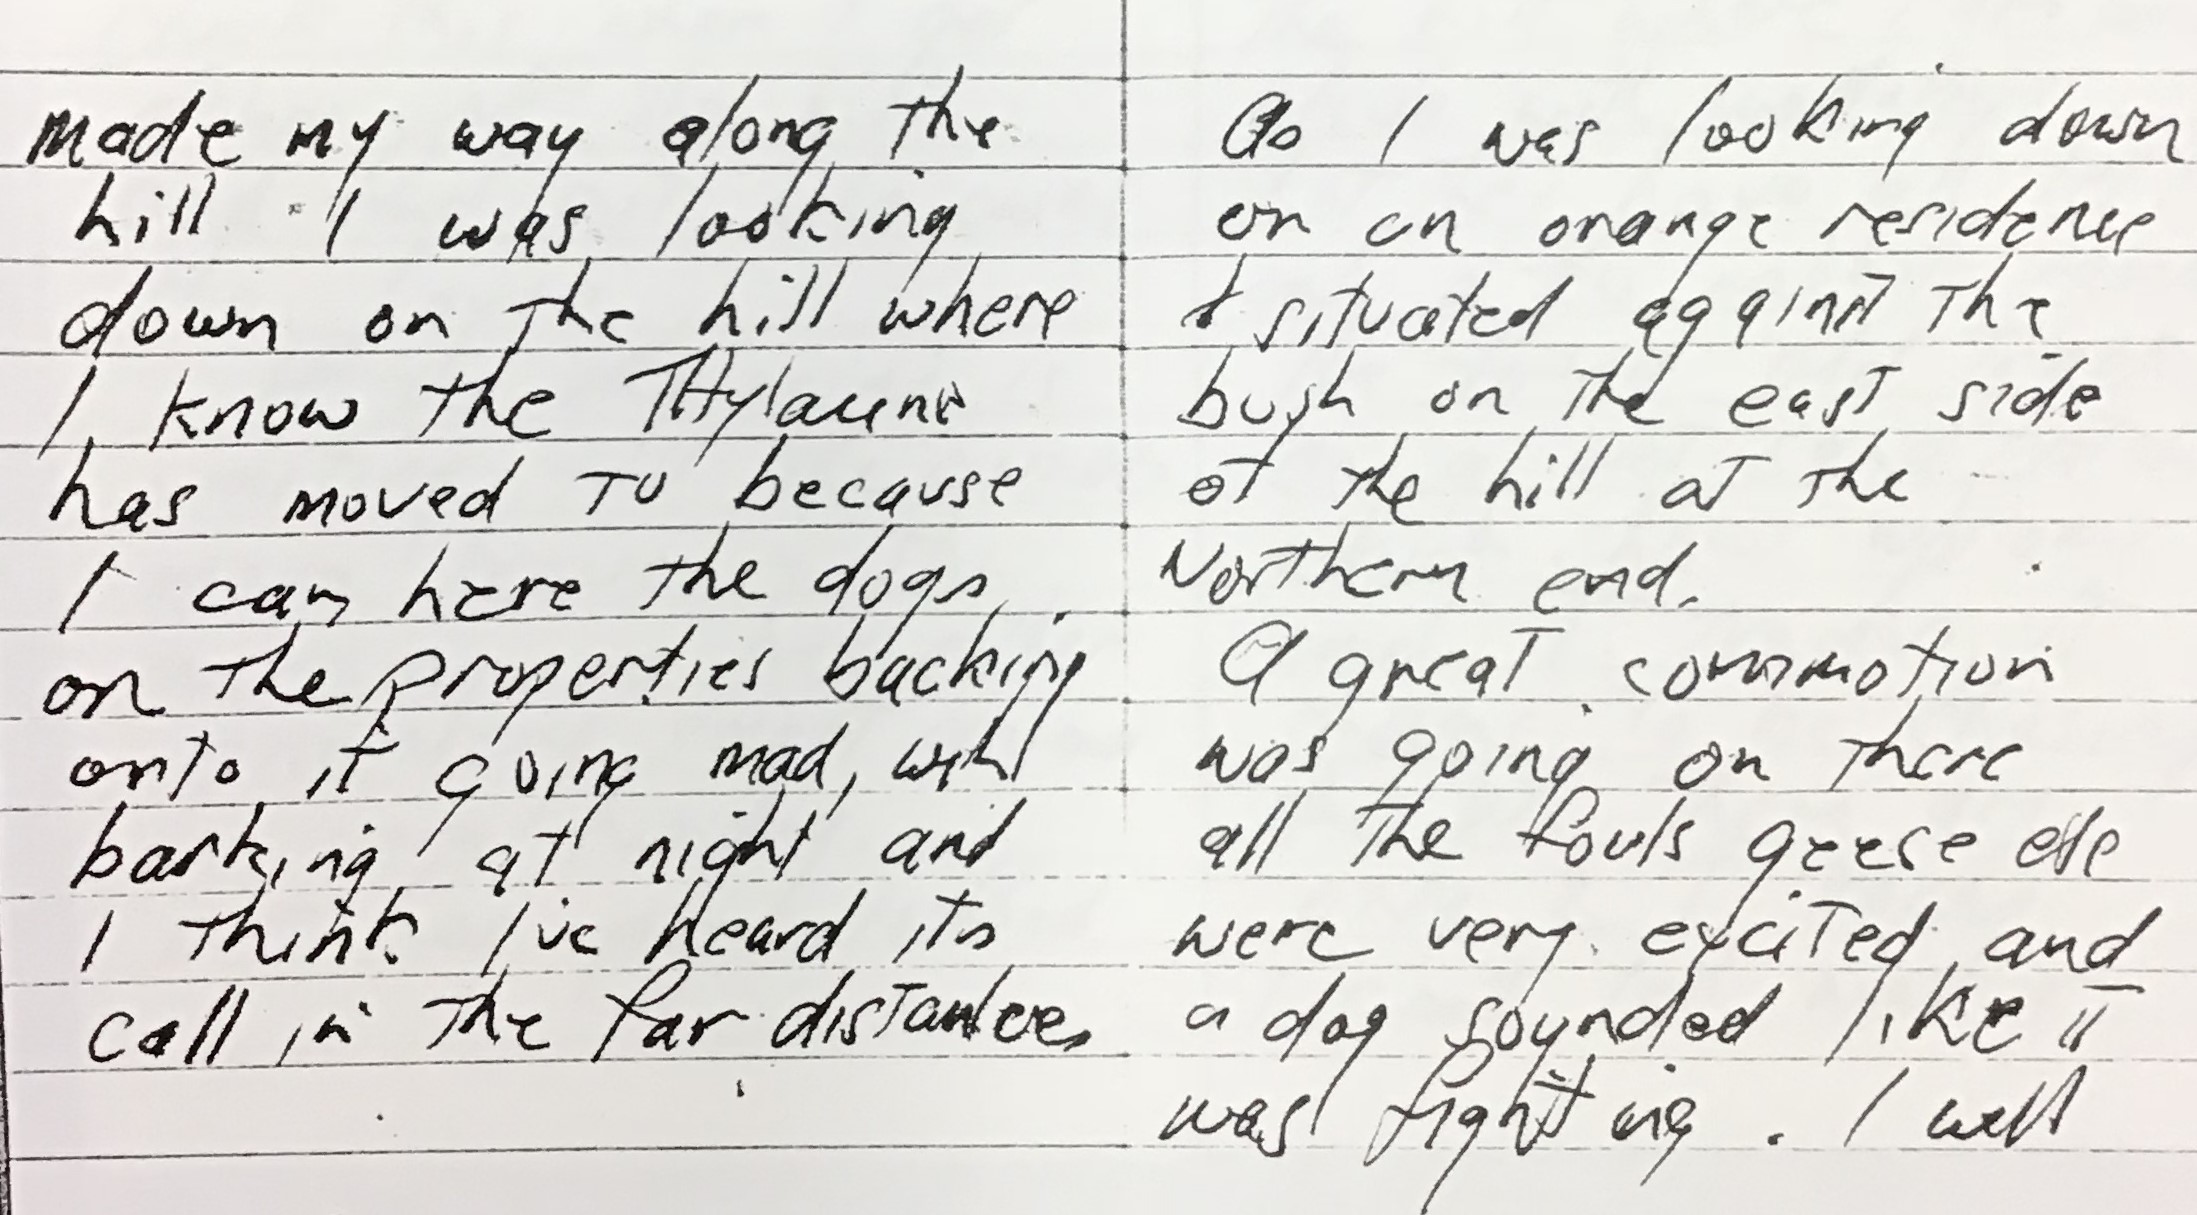 made my way along the
hill I was looking
down on the hill where
I know the THylacine
has moved to because
I can here the dogs
on the properties backing
onto it going mad, with
barking at night and
I think I've heard its
call in the far distance.
As I was looking down
on an orange residence
& situated against the
bush on the east side
of the hill at the
Northern end.
A great commotion
was going on there
all the fouls geese etc
were very excited and
a dog sounded like it
was fighting. I well